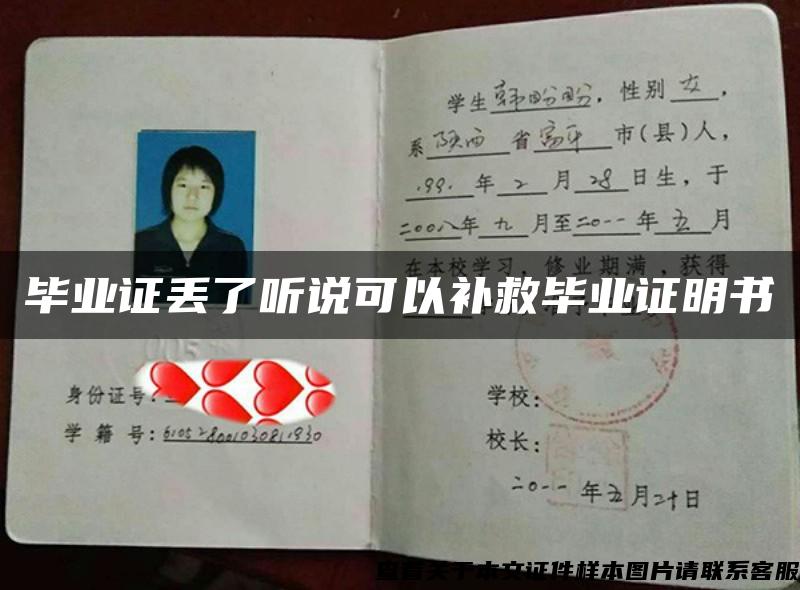 学生韩盼盼，性别女，
系陕西省富平市(县)人，
1991年2月28日生，于
二00八年九月至二0一一年五月
在本校学习，修业期满，获得
毕业证丢了听说可以补救毕业证明书
005
身份证号：
学籍号：610528001030811930
学校：
校长：
二0一一年五月二十日
查看关于本文证件样本图片请联系客服